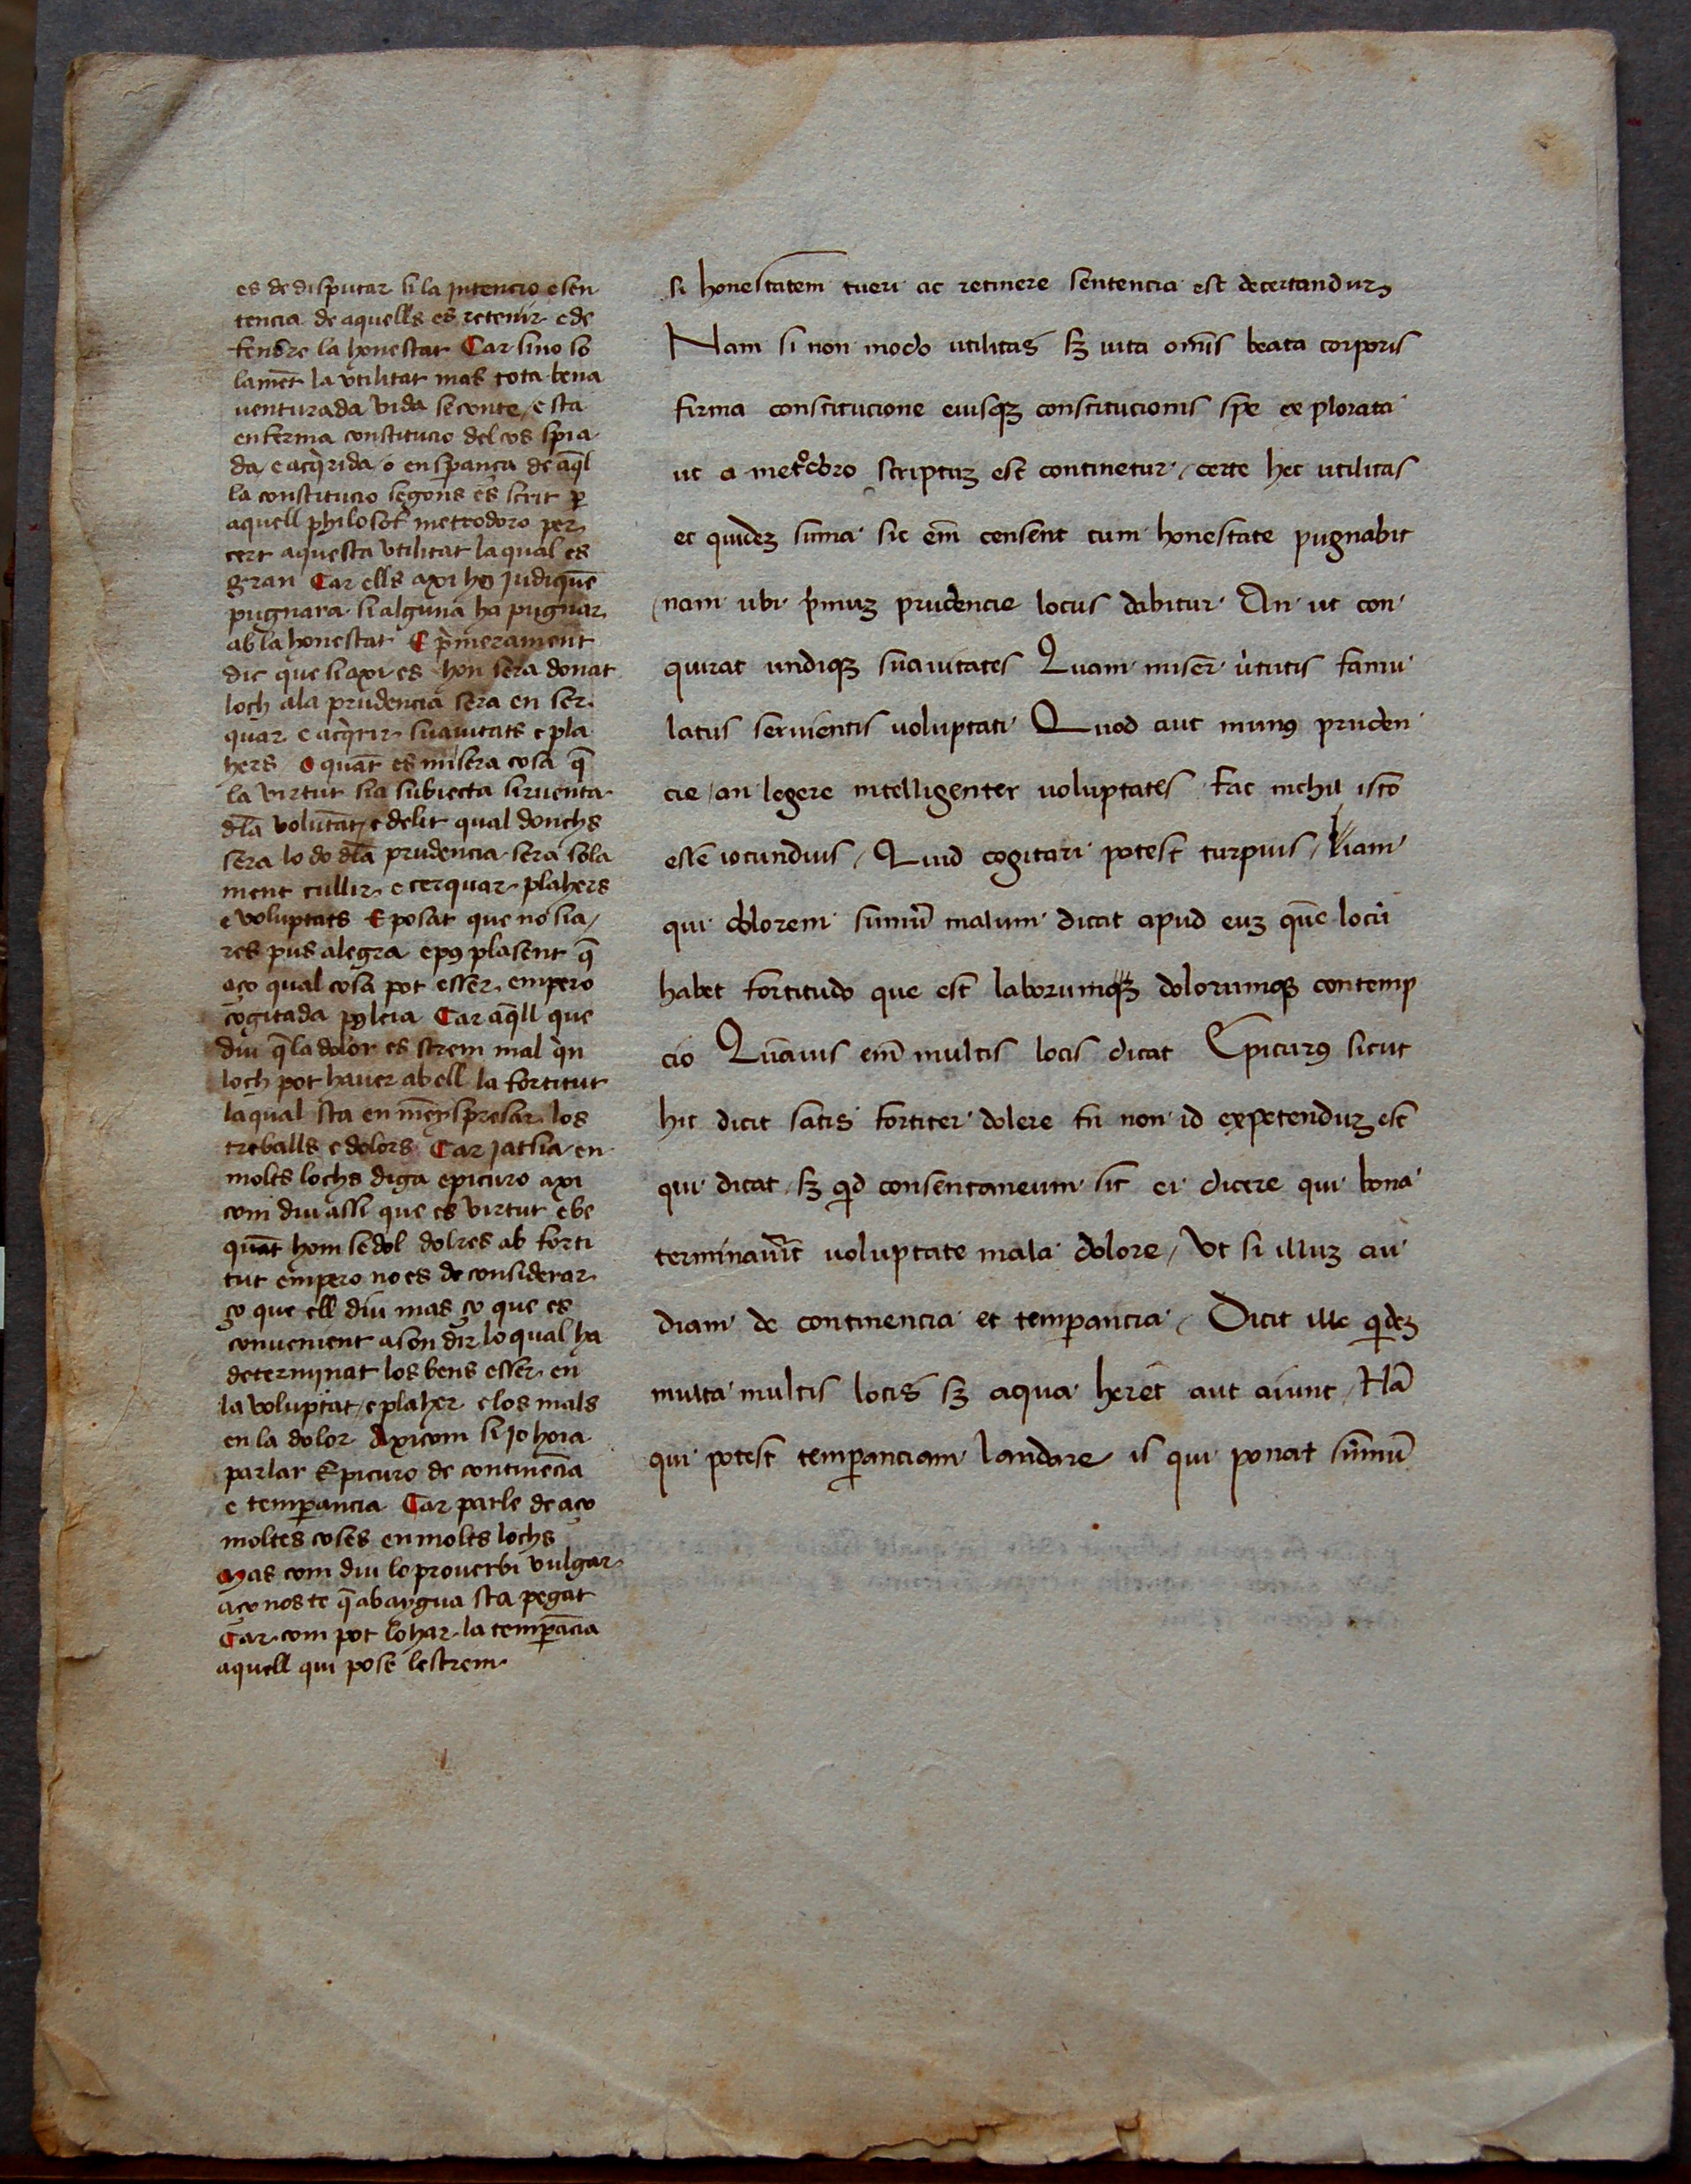 es de disputar si la jntencio e sen
tencia de aquells es retenir e de
fendre la honestat Car si no so
lamēt la vtilitat mas tota bena
uenturada vida se conte / e sta
en ferma constitucio del cos spia
da / e acq̀rida / o en spança de aq̄l
la constitucio segons es scrit ꝑ
aquell philosof metrodoro per
cert aquesta vtilitat la qual es
gran Car ells axi ho judiquē
pugnara si alguna ha pugnar
ab la honestat E p̀merament
dic que si axi es hon sera donat
loch a la prudencia sera en ser
quar e acq̀rir suauitats e pla
hers O quāt es misera cosa q̄
la virtut sia subiecta siruenta
dla voluntat / e delit qual donchs
sera lo do dla prudencia sera sola
ment cullir e cerquar plahers
e voluptats E posat que no sia /
res pus alegra e pꝯ plasent q̄
aço qual cosa pot esser empero
cogitada pꝯ leia Car aq̄ll que
diu q̄ la dolor es strem mal q̀n
loch pot hauer ab ell la fortitut
la qual sta en menyspresar los
treballs e dolors Car jatsia en
molts lochs diga epicuro axi
com diu assi que es virtut e be
quāt hom se dol dolres ab forti
tut empero no es de considerar
ço que ell diu mas ço que es
conuenient a son dir lo qual ha
determjnat los bens esser en
la voluptat / e plaher e los mals
en la dolor Axi com si jo hoia
parlar Epicuro de continēcia
e temꝑancia Car parle de aço
moltes coses en molts lochs
Mas com diu lo prouerbi vulgar
aço nos te q̄ ab aygua sta pegat
Car com pot lohar la temꝑācia
aquell qui pose lestrem
si honestatem tueri ac retinere sentencia est decertanduꝫ
Nam si non modo utilitas sꝫ uita omīs beata corporis
firma constitucione eiusqꝫ constitucionis spe explorata
ut a met°doro scriptuꝫ est continetur / certe hec utilitas
et quideꝫ suma sic em̄ censent cum honestate pugnabit
nam ubi p̀muꝫ prudencie locus dabitur An ut con
quirat undiqꝫ suauitates Quam miser̄ ùtutis famu
latus seruientis uoluptati Quod aut munꝯ pruden
cie / an legere intelligenter uoluptates Fac nichil isto
esse iocundius / Quid cogitari potest turpius / Iam
qui dolorem sumū malum dicat apud euꝫ quē locū
habet fortitudo que est laborumqꝫ dolorumqꝫ contemp
cio Quāuis em̄ multis locis dicat Epicurꝯ sicut
hic dicit satis fortiter dolere tn̄ non id expetenduꝫ est
qui dicat sꝫ qd consentaneum sit ei dicere qui bona
terminauīt uoluptate mala dolore / Vt si illuꝫ au
diam de continencia et temꝑancia / Dicit ille qdeꝫ
multa multis locis sꝫ aqua heret aut aiunt / Nā
qui potest temꝑanciam laudare is qui ponat sumū